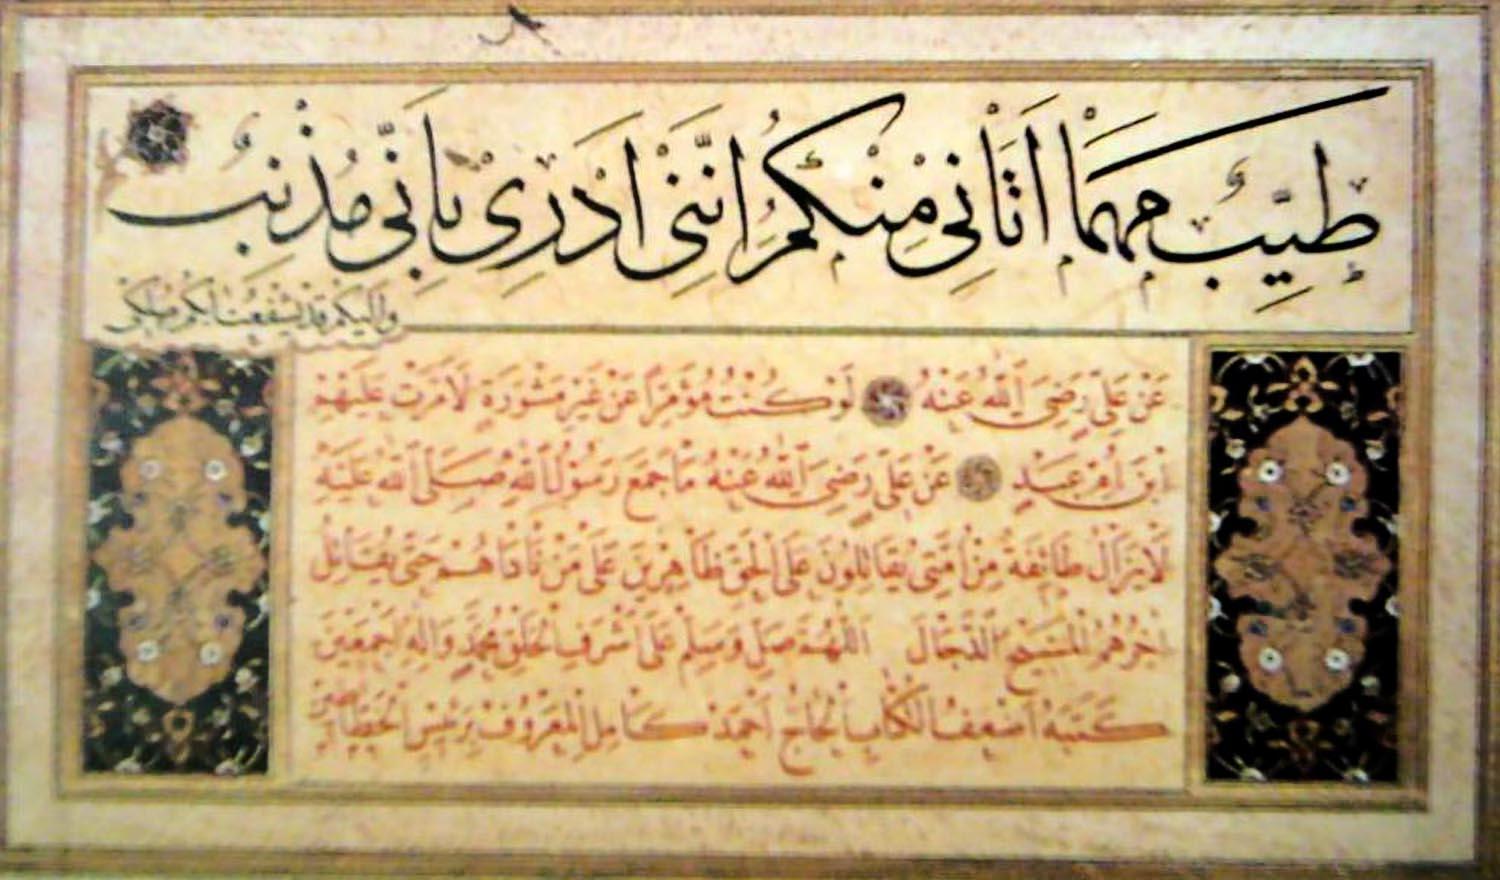 طَيِّبٌ مَهْمَا أَتَانِي مِنْكُمُ إِنَّنِي أَدْرِي بِأَنِّي مُذْنِبٌ
وإليكم قد تشفعت بكم
عَنْ عَلِيٍّ رَضِيَ اللهُ عَنْهُ لَوْ كُنْتُ مُؤَمِّرًا عَنْ غَيْرِ مَشْوَرَةٍ لَأَمَّرْتُ عَلَيْهِمْ
ابْنَ أُمِّ عَبْدٍ عَنْ عَلِيٍّ رَضِيَ اللهُ عَنْهُ مَا جَمَعَ رَسُولُ اللهِ صَلَّى اللهُ عَلَيْهِ
لَا يَزَالُ طَائِفَةٌ مِنْ أُمَّتِي يُقَاتِلُونَ عَلَى الْحَقِّ ظَاهِرِينَ عَلَى مَنْ نَاوَاهُمْ حَتَّى يُقَاتِلَ
آخِرُهُمُ الْمَسِيحَ الدَّجَّالَ اللهم صَلِّ وَسَلِّمْ عَلَى أَشْرَفِ الْخَلْقِ مُحَمَّدٍ وَآلِهِ أَجْمَعِينَ
كَتَبَهُ أَضْعَفُ الْكُتَّابِ الْحَاجُّ أَحْمَدْ كَامِلُ الْمَعْرُوفُ بِرَئِيسِ الْخَطَّاطِينَ